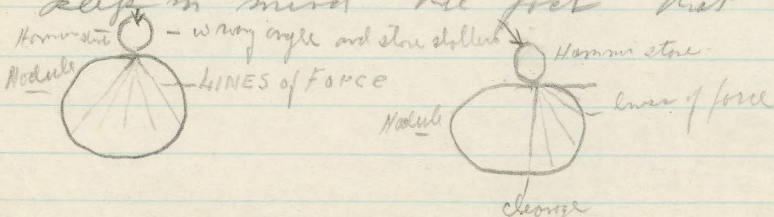 kept in mind the fact that
Hammerstone - wrong angle and stone shatters
Nodule
LINES of FORCE
Hammerstone
Nodule
lines of force
cleavage